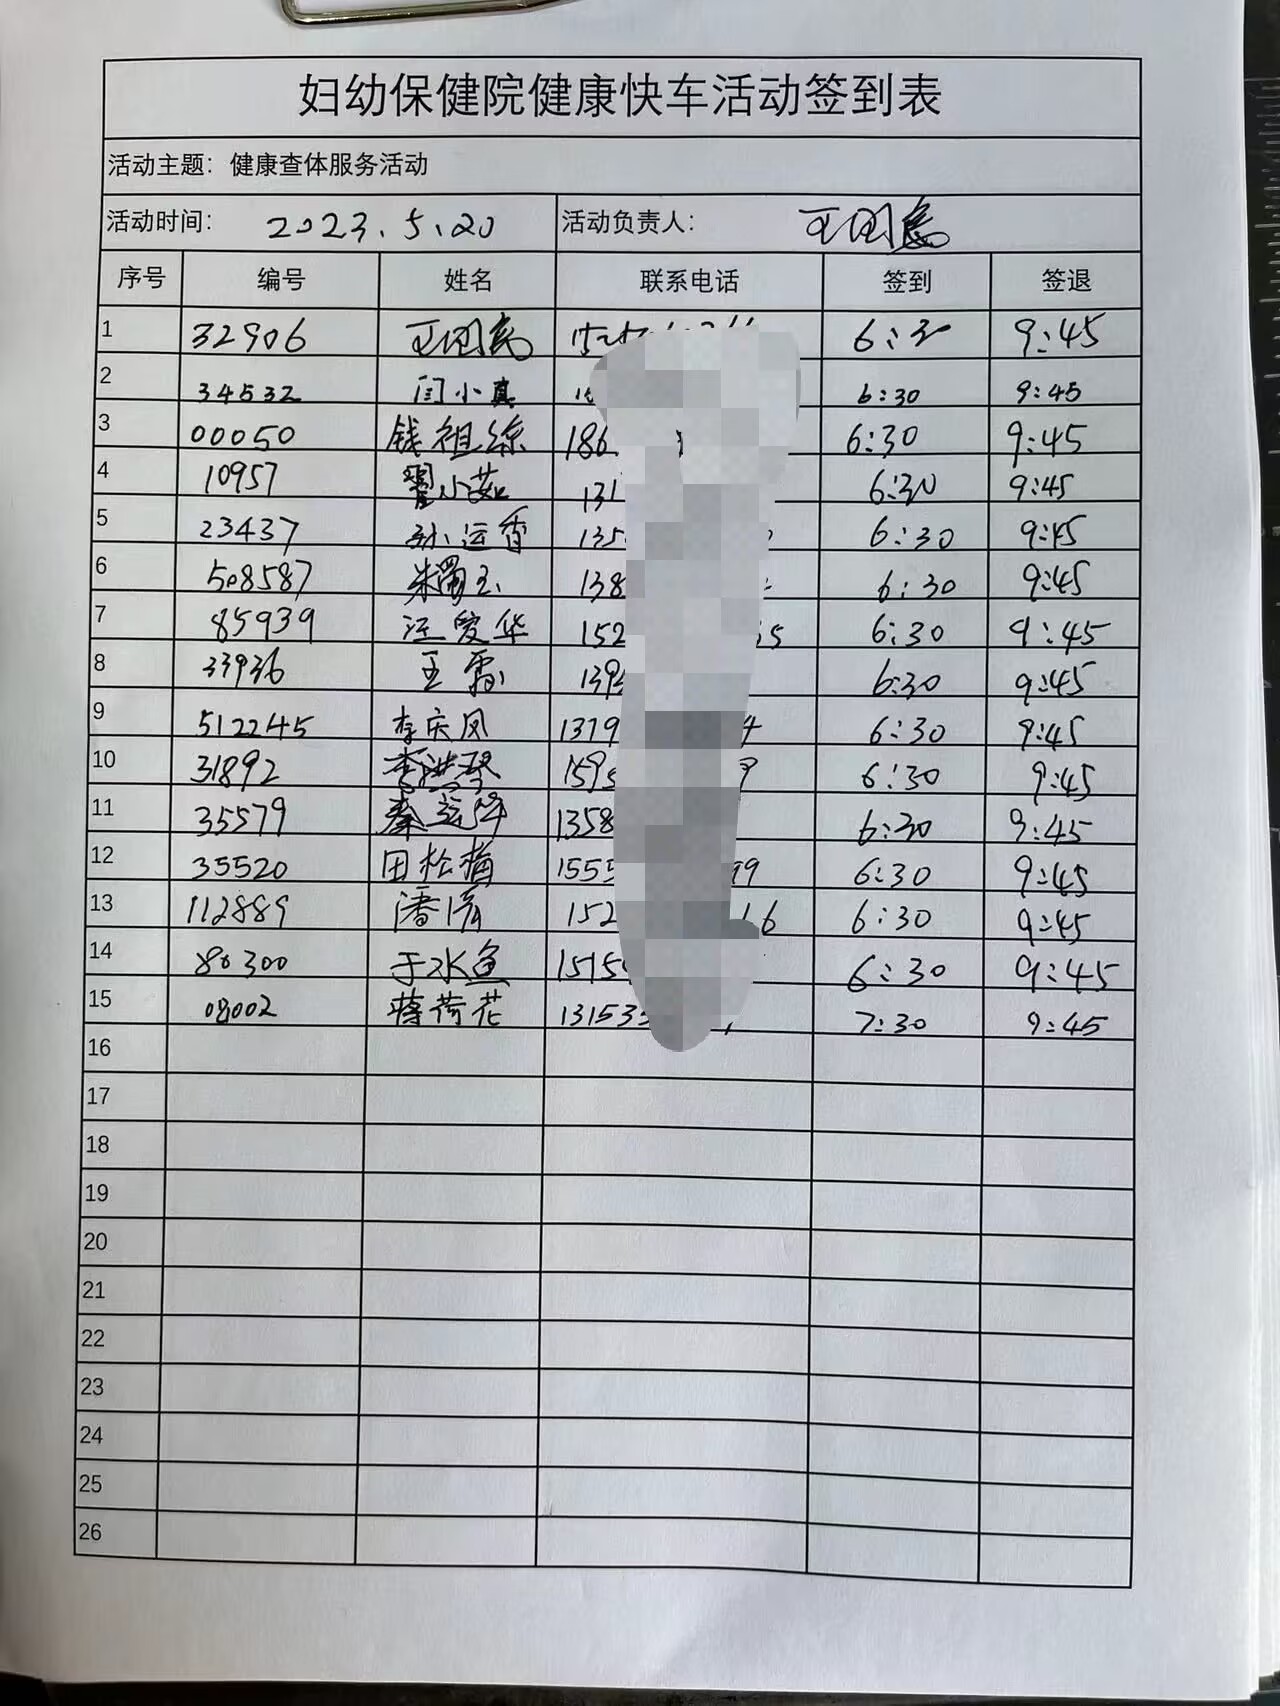 妇幼保健院健康快车活动签到表
活动主题：健康查体服务活动
活动时间： 2023.5.20 活动负责人：
序号 编号 姓名 联系电话 签到 签退
1 32906 6:30 9:45
2 34532 闫小真 6:30 9:45
3 00050 钱祖综 186 6:30 9:45
4 10957 翟小茹 131 6:30 9:45
5 23437 孙运香 135 6:30 9:45
6 508587 138 6:30 9:45
7 85939 汪爱华 152 55 6:30 9:45
8 33936 王霞 139 6:30 9:45
9 512245 李庆凤 1379 4 6:30 9:45
10 31892 李洪琴 1595 9 6:30 9:45
11 35579 1358 6:30 9:45
12 35520 田松梅 1555 99 6:30 9:45
13 112889 潘倩 152 16 6:30 9:45
14 80300 于水鱼 1515 6:30 9:45
15 08002 蒋荷花 13153 7:30 9:45
16
17
18
19
20
21
22
23
24
25
26